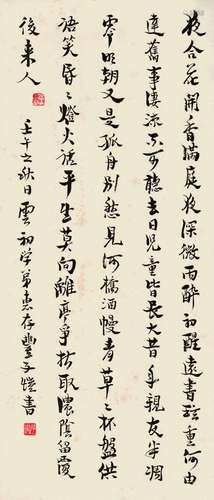 夜合花開香滿庭夜深微雨醉初醒遠書珍重何由
達舊事淒涼不可聽去日兒童皆長大昔年親友半凋
零明朝又是孤舟別愁見河橋酒幔青草〻杯盤供
語笑昏〻燈火話平生莫向離亭爭折取濃陰留覆
後來人
壬午之秋日雲初學弟惠存豐子愷書